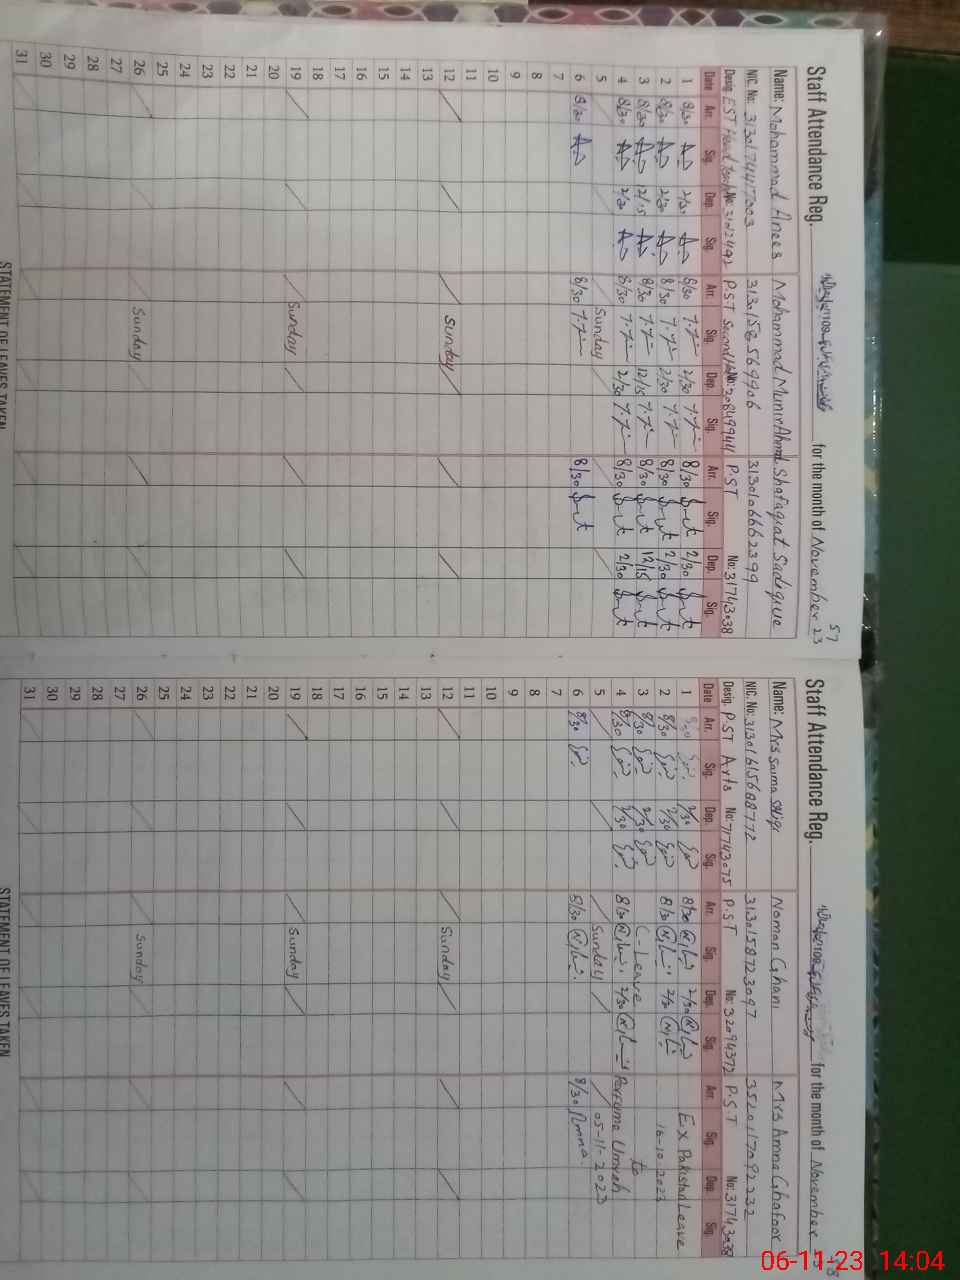 57
Staff Attendance Reg. for the month of November 23
Name: Mohammad Anees Mohammad Munir Ahmd Shafaqat Sadique
NIC. No: 3130174417003 3130158569906 3130106662399
Desig. EST Head No: 3102492 P.ST No: 20849944 P.ST No: 31743038
Date Arr. Sig. Dep. Sig. Arr. Sig. Dep. Sig. Arr. Sig. Dep. Sig.
1 8/30 2/30 8/30 2/30 8/30 2/30
2 8/30 2/30 8/30 2/30 8/30 2/30
3 8/30 12/15 8/30 12/15 8/30 12/15
4 8/30 2/30 8/30 2/30 8/30 2/30
5 Sunday
6 8/30 8/30 8/30
7
8
9
10
11
12 Sunday
13
14
15
16
17
18
19 Sunday
20
21
22
23
24
25
26 Sunday
27
28
29
30
31
STATEMENT OF LEAVES TAKEN
Staff Attendance Reg. for the month of November
Name: Mrs Saima Noman Ghani Mrs Amna Ghafoor
NIC. No: 3130161568877 2 3130158723097 3520117092232
Desig. P.ST Arts No: 71743075 P.ST No: 32094372 P.S.T No: 31743038
Date Arr. Sig. Dep. Sig. Arr. Sig. Dep. Sig. Arr. Sig. Dep. Sig.
1 2/30 8/30 2/30 Ex Pakistan Leave
2 8/30 2/30 8/30 2/30 16-10-2023
3 8/30 2/30 C-Leave to
4 8/30 2/30 8/30 2/30 Perfume Umrah
5 Sunday 05-11-2023
6 8/30 8/30 Amna.
7
8
9
10
11
12 Sunday
13
14
15
16
17
18
19 Sunday
20
21
22
23
24
25
26 Sunday
27
28
29
30
31
STATEMENT OF LEAVES TAKEN
06-11-23 14:04